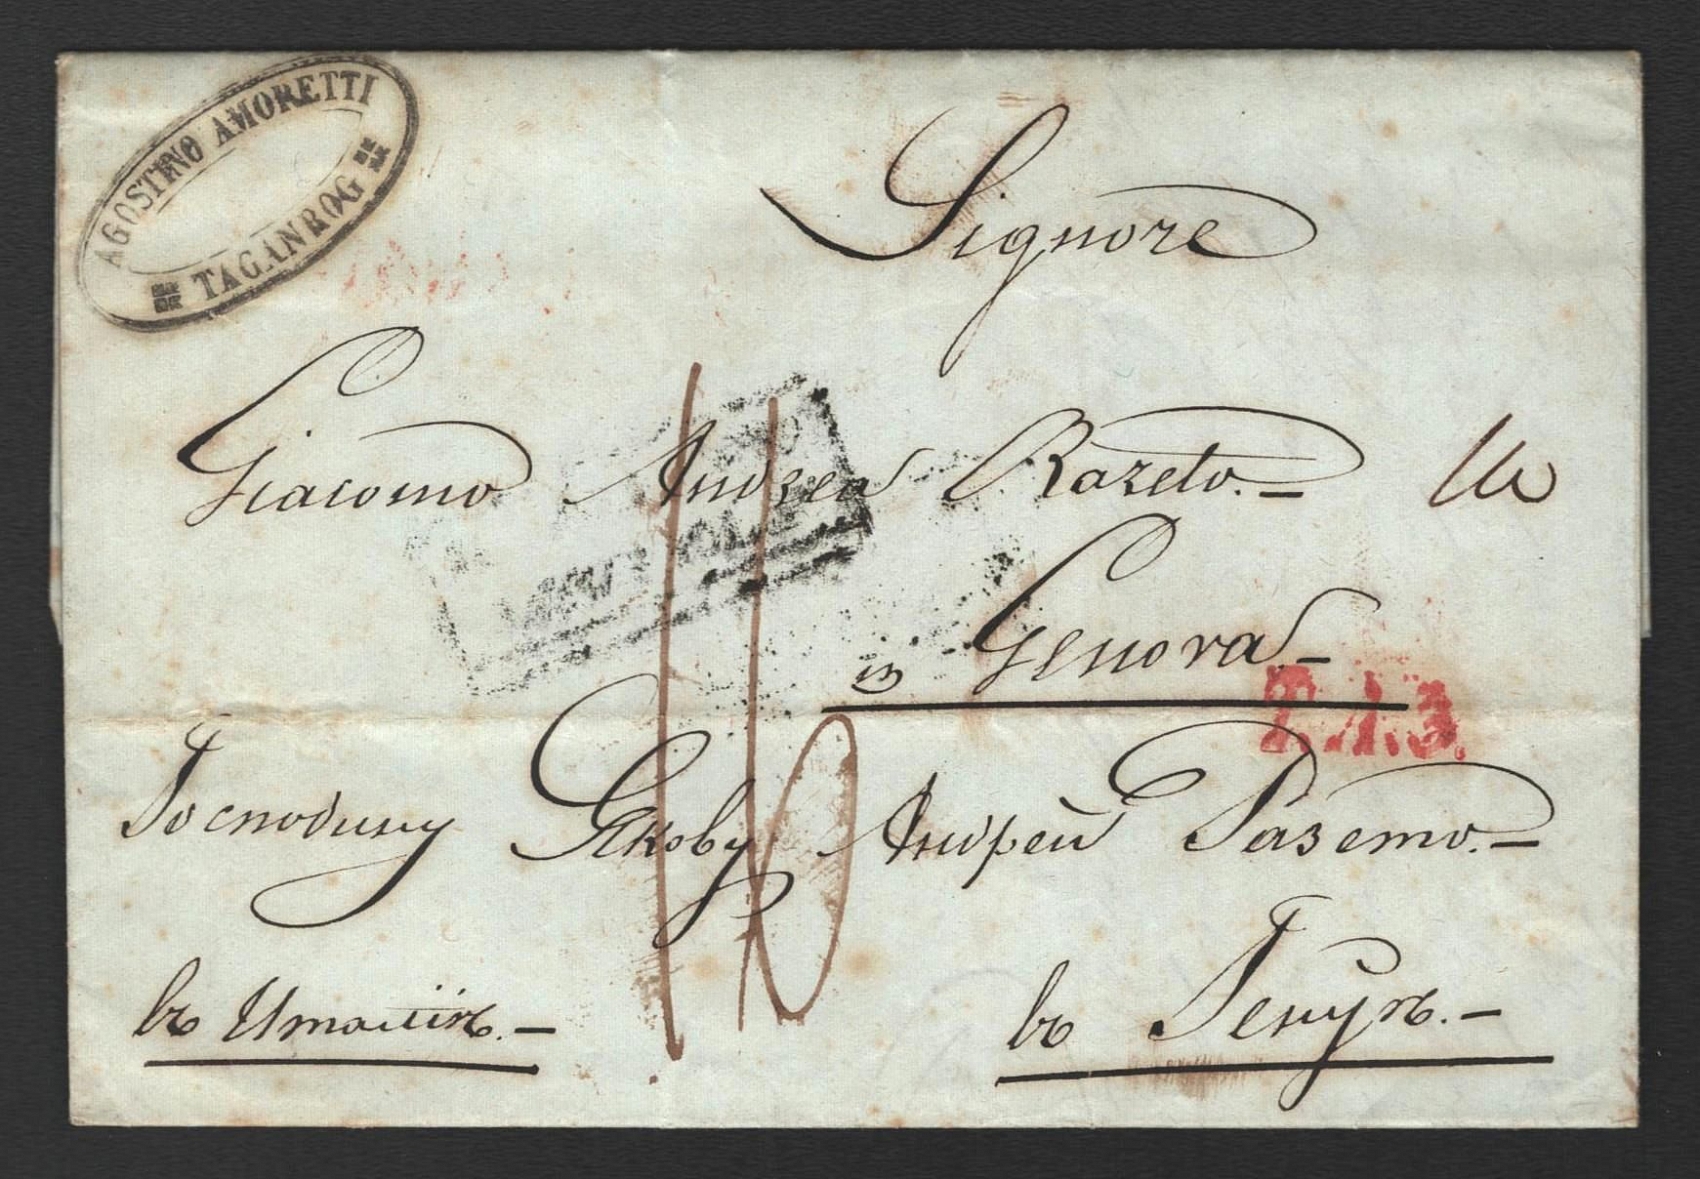 AGOSTINO AMORETTI
TAGANROG
Signore
Giacomo Andrea Razeto.
in Genova
T.A.3.
Господину Якову Андрей Разето.
въ Италіи.
въ Генуѣ.